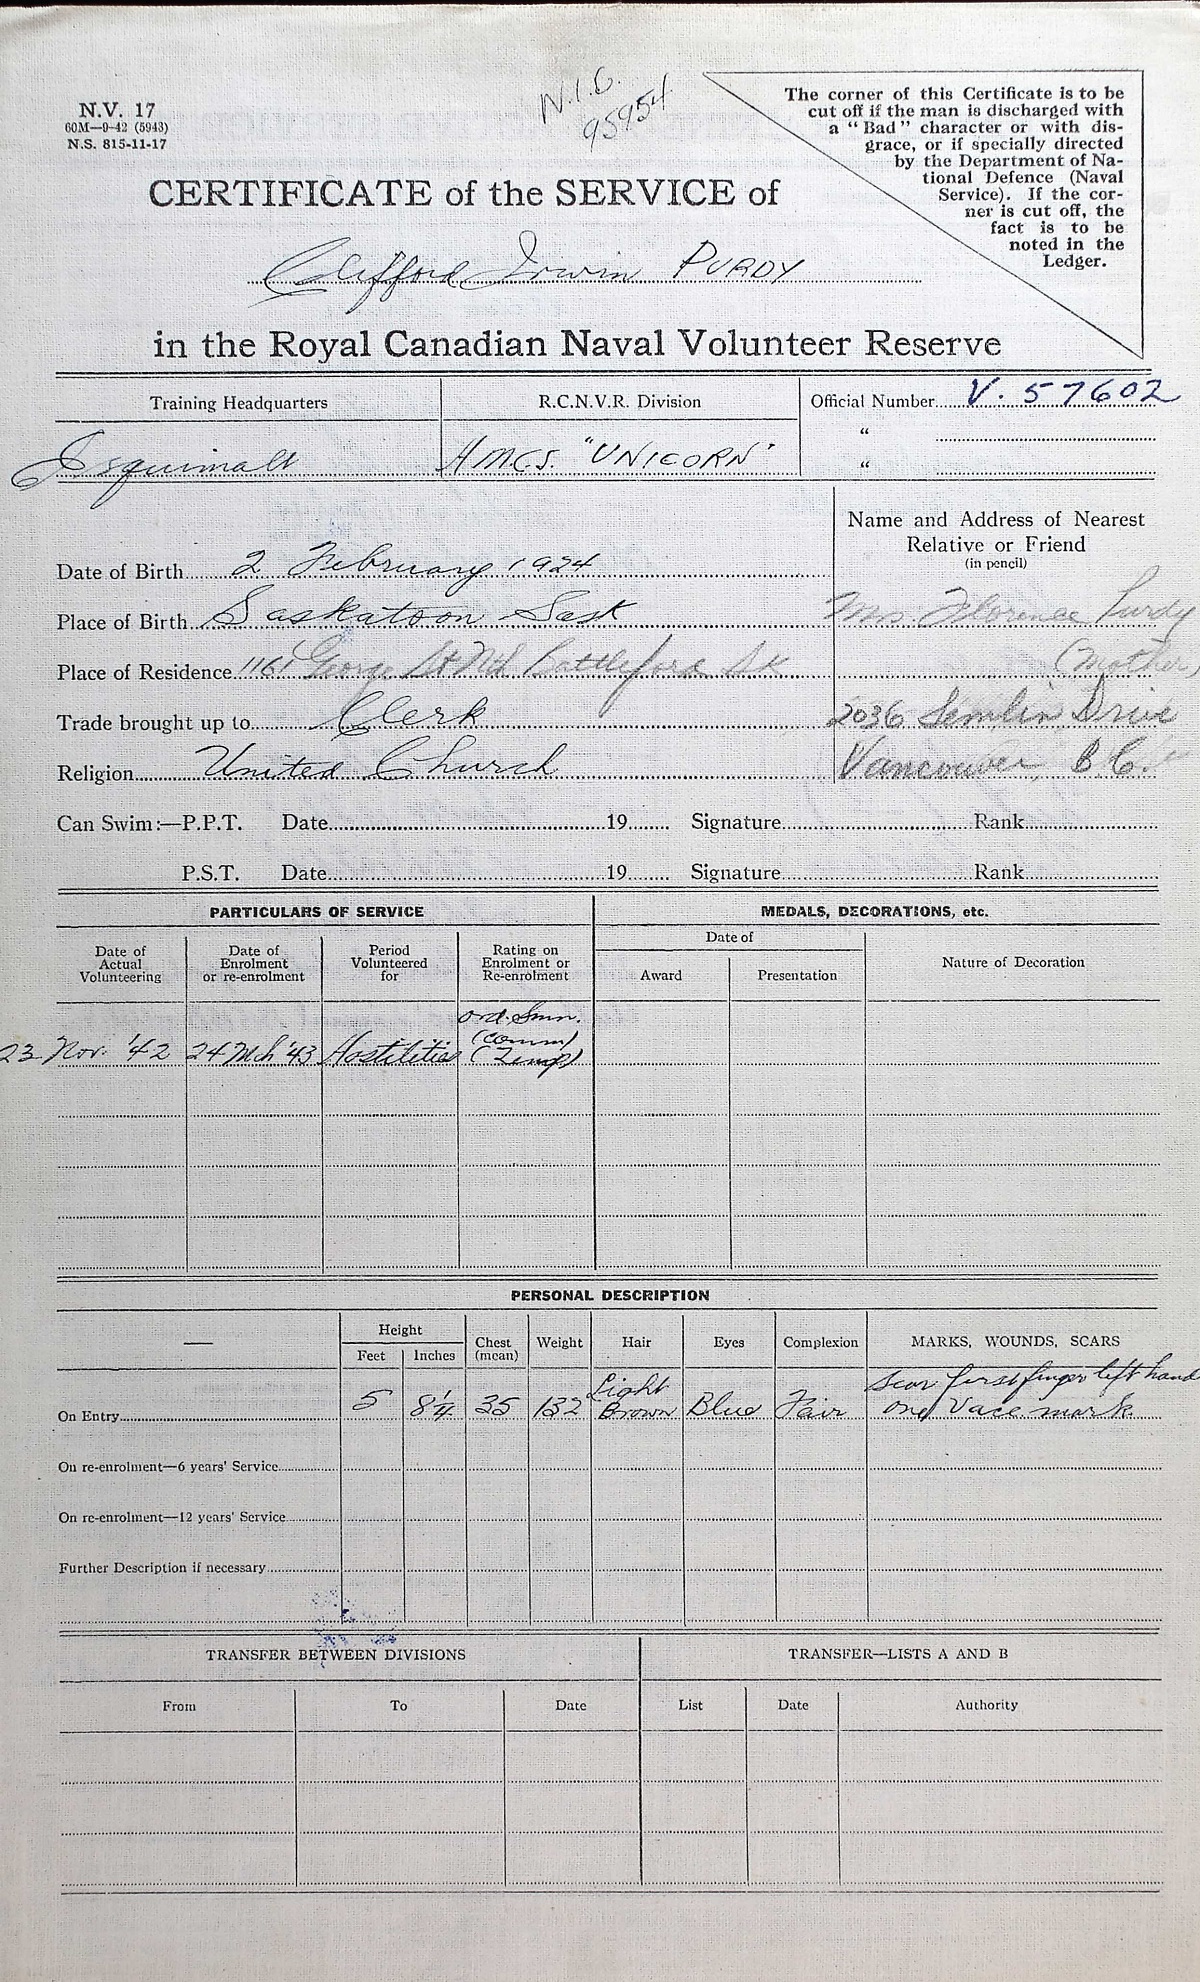 N.I.C.
95954
N.V. 17
60M—9-42 (5943)
N.S. 815-11-17
The corner of this Certificate is to be
cut off if the man is discharged with
a "Bad" character or with dis-
grace, or if specially directed
by the Department of Na-
tional Defence (Naval
Service). If the cor-
ner is cut off, the
fact is to be
noted in the
Ledger.
CERTIFICATE of the SERVICE of
Clifford Irwin PURDY
in the Royal Canadian Naval Volunteer Reserve
Training Headquarters
Esquimalt
R.C.N.V.R. Division
HMCS. "UNICORN"
Official Number V. 57602
"
"
Date of Birth 2 February 1924
Place of Birth Saskatoon Sask
Place of Residence 1161 George St Nth Battleford Sk
Trade brought up to Clerk
Religion United Church
Name and Address of Nearest
Relative or Friend
(in pencil)
Mrs. Florence Purdy
(Mother)
2036 Semlin Drive
Vancouver, B.C.
Can Swim:—P.P.T. Date 19 Signature Rank
P.S.T. Date 19 Signature Rank
PARTICULARS OF SERVICE
MEDALS, DECORATIONS, etc.
Date of
Actual
Volunteering
Date of
Enrolment
or re-enrolment
Period
Volunteered
for
Rating on
Enrolment or
Re-enrolment
Date of
Award
Presentation
Nature of Decoration
23 Nov. '42
24 Mch '43
Hostilities
Ord. Smn.
(Comm)
(Temp)
PERSONAL DESCRIPTION
—
Height
Feet
Inches
Chest
(mean)
Weight
Hair
Eyes
Complexion
MARKS, WOUNDS, SCARS
On Entry 5 8¼ 35 132 Light Brown Blue Fair
Scar first finger left hand
one Vacc mark.
On re-enrolment—6 years' Service
On re-enrolment—12 years' Service
Further Description if necessary
TRANSFER BETWEEN DIVISIONS
TRANSFER—LISTS A AND B
From To Date List Date Authority